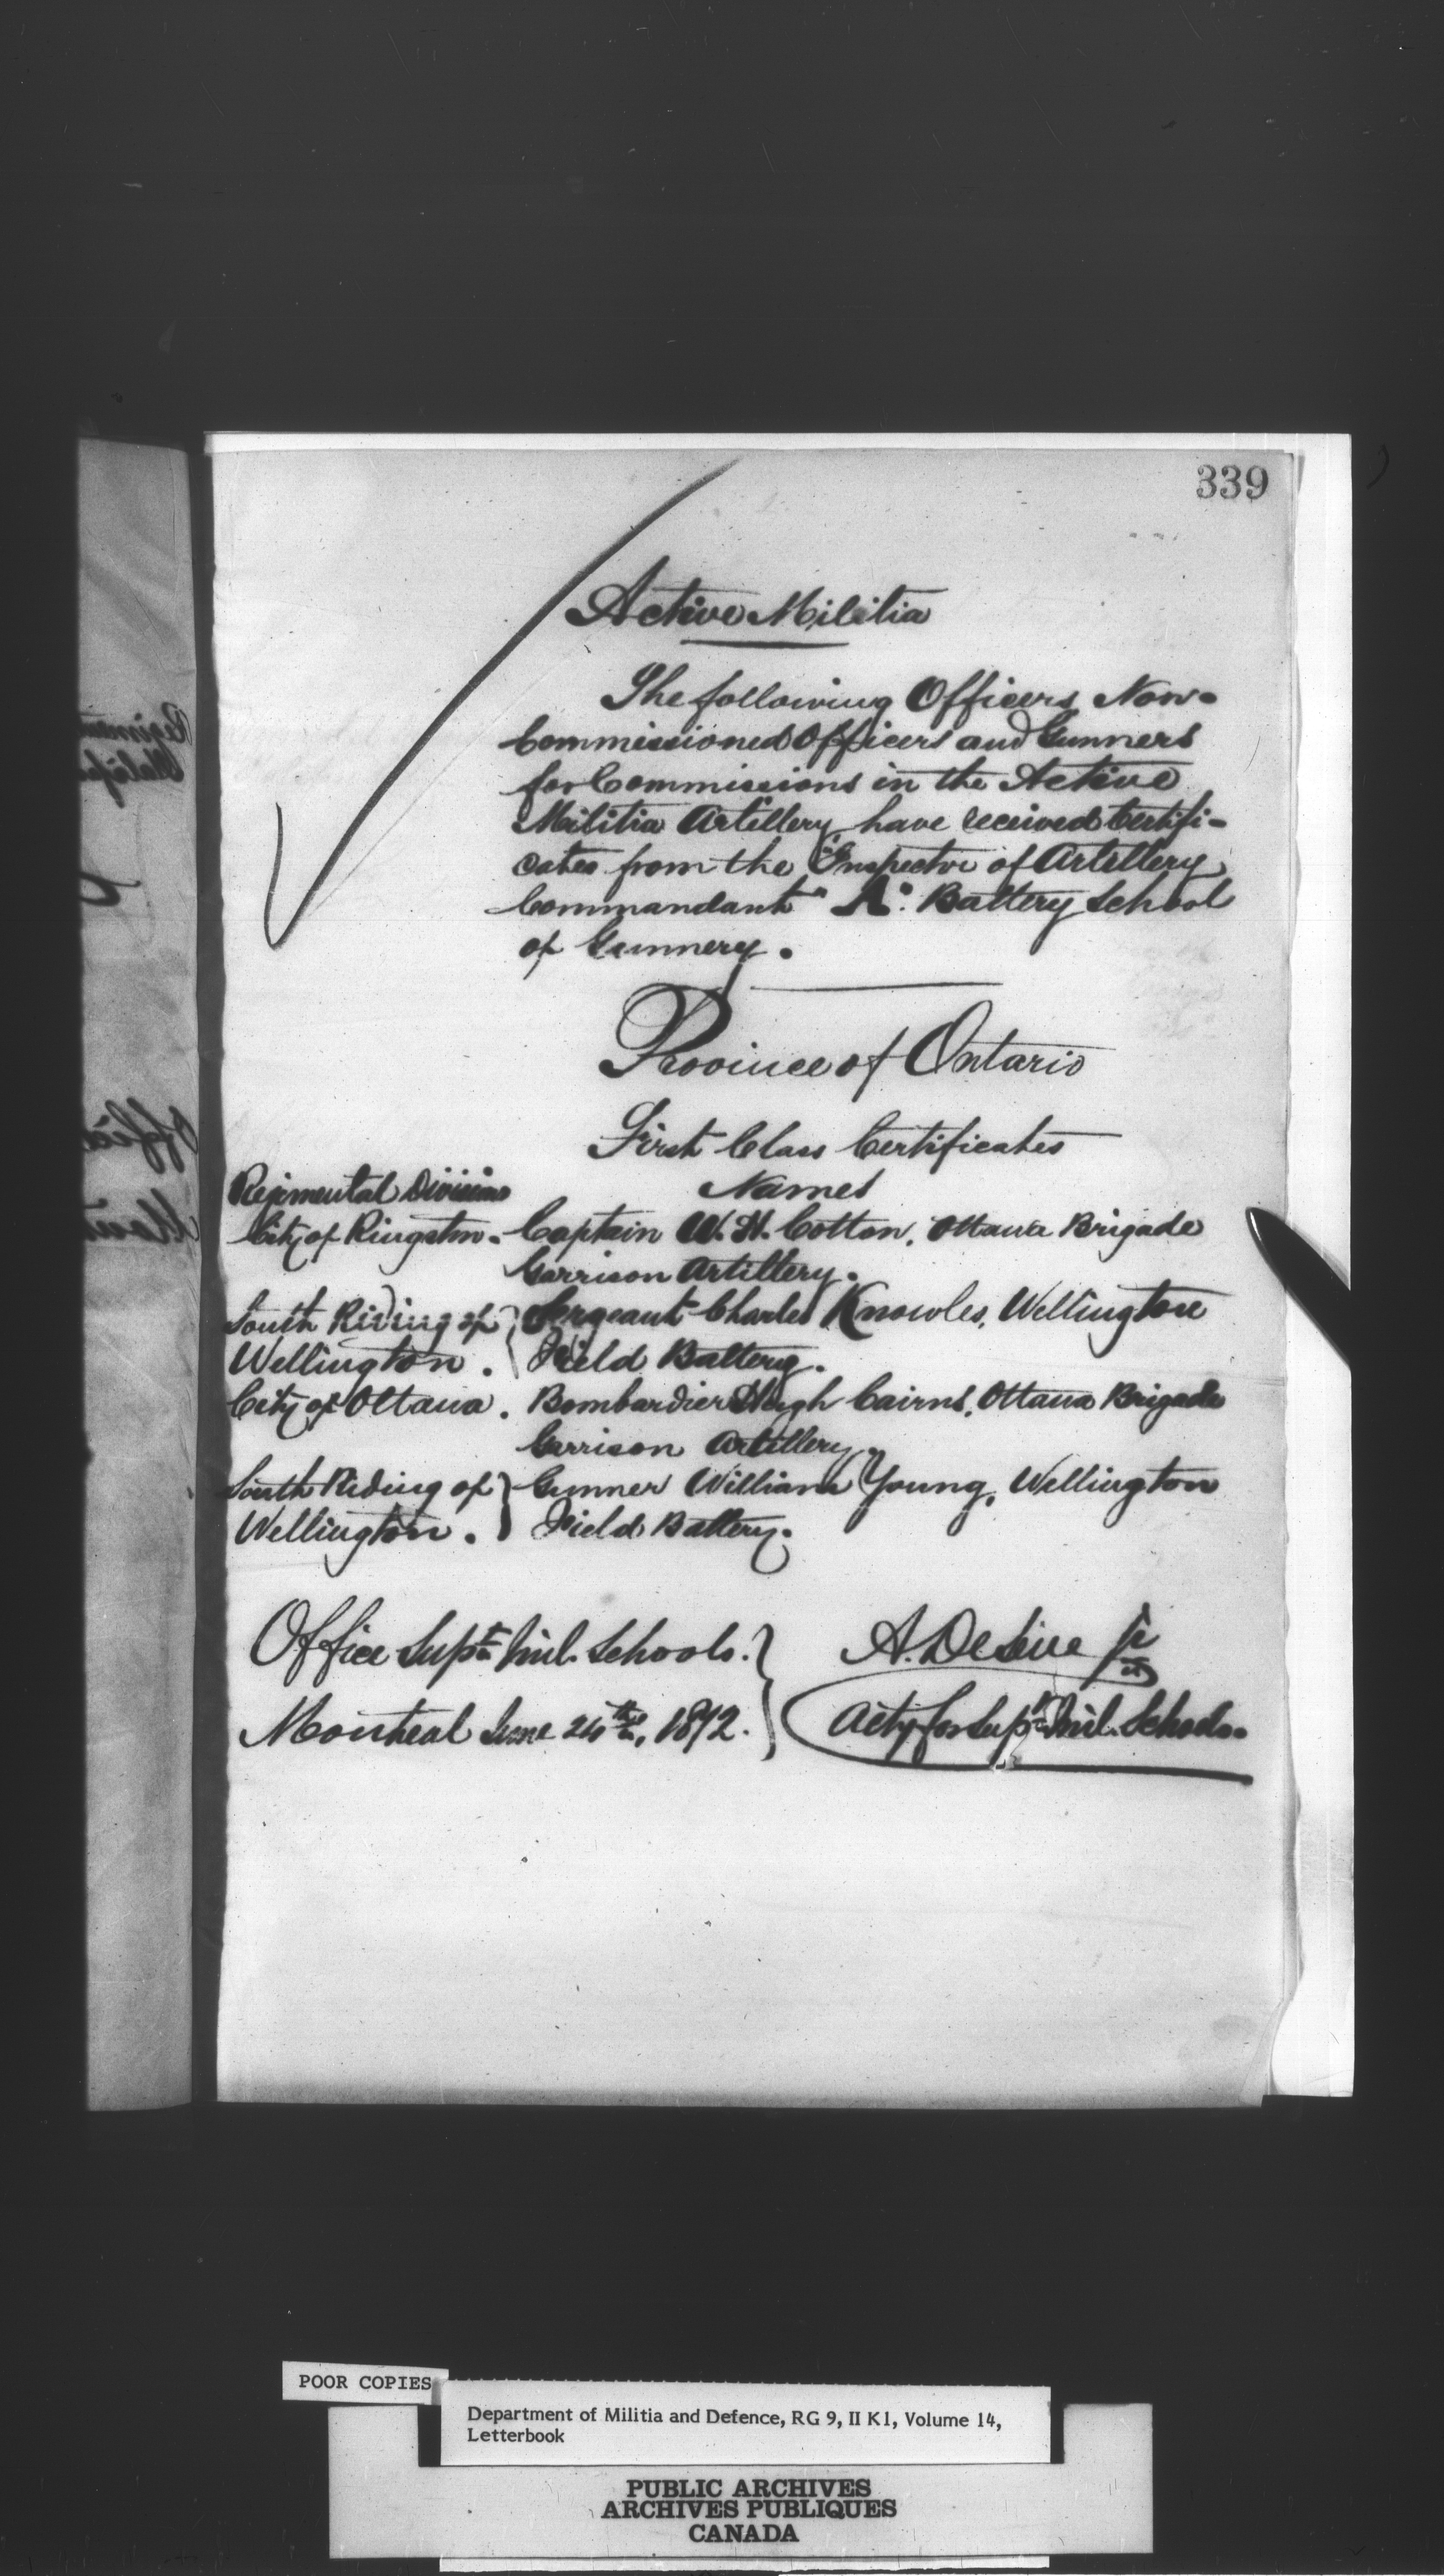 339
Active Militia
The following Officers, Non-
Commissioned Officers and Gunners
for Commissions in the Active
Militia Artillery have received Certifi-
cates from the Inspector of Artillery
Commandant "A". Battery School
of Gunnery.
Province of Ontario
First Class Certificates
Regimental Divisions Names
City of Kingston. Captain W. H. Cotton, Ottawa Brigade
Garrison Artillery.
South Riding of } Sergeant Charles Knowles, Wellington
Wellington. { Field Battery.
City of Ottawa. Bombardier Hugh Cairns, Ottawa Brigade
Garrison Artillery.
South Riding of } Gunner William Young, Wellington
Wellington. } Field Battery.
Office Supt. Mil. Schools. } A. DeLine Jr
Montreal June 24th, 1872. } Actg for Supt Mil. Schools.
POOR COPIES
Department of Militia and Defence, RG 9, II K1, Volume 14,
Letterbook
PUBLIC ARCHIVES
ARCHIVES PUBLIQUES
CANADA